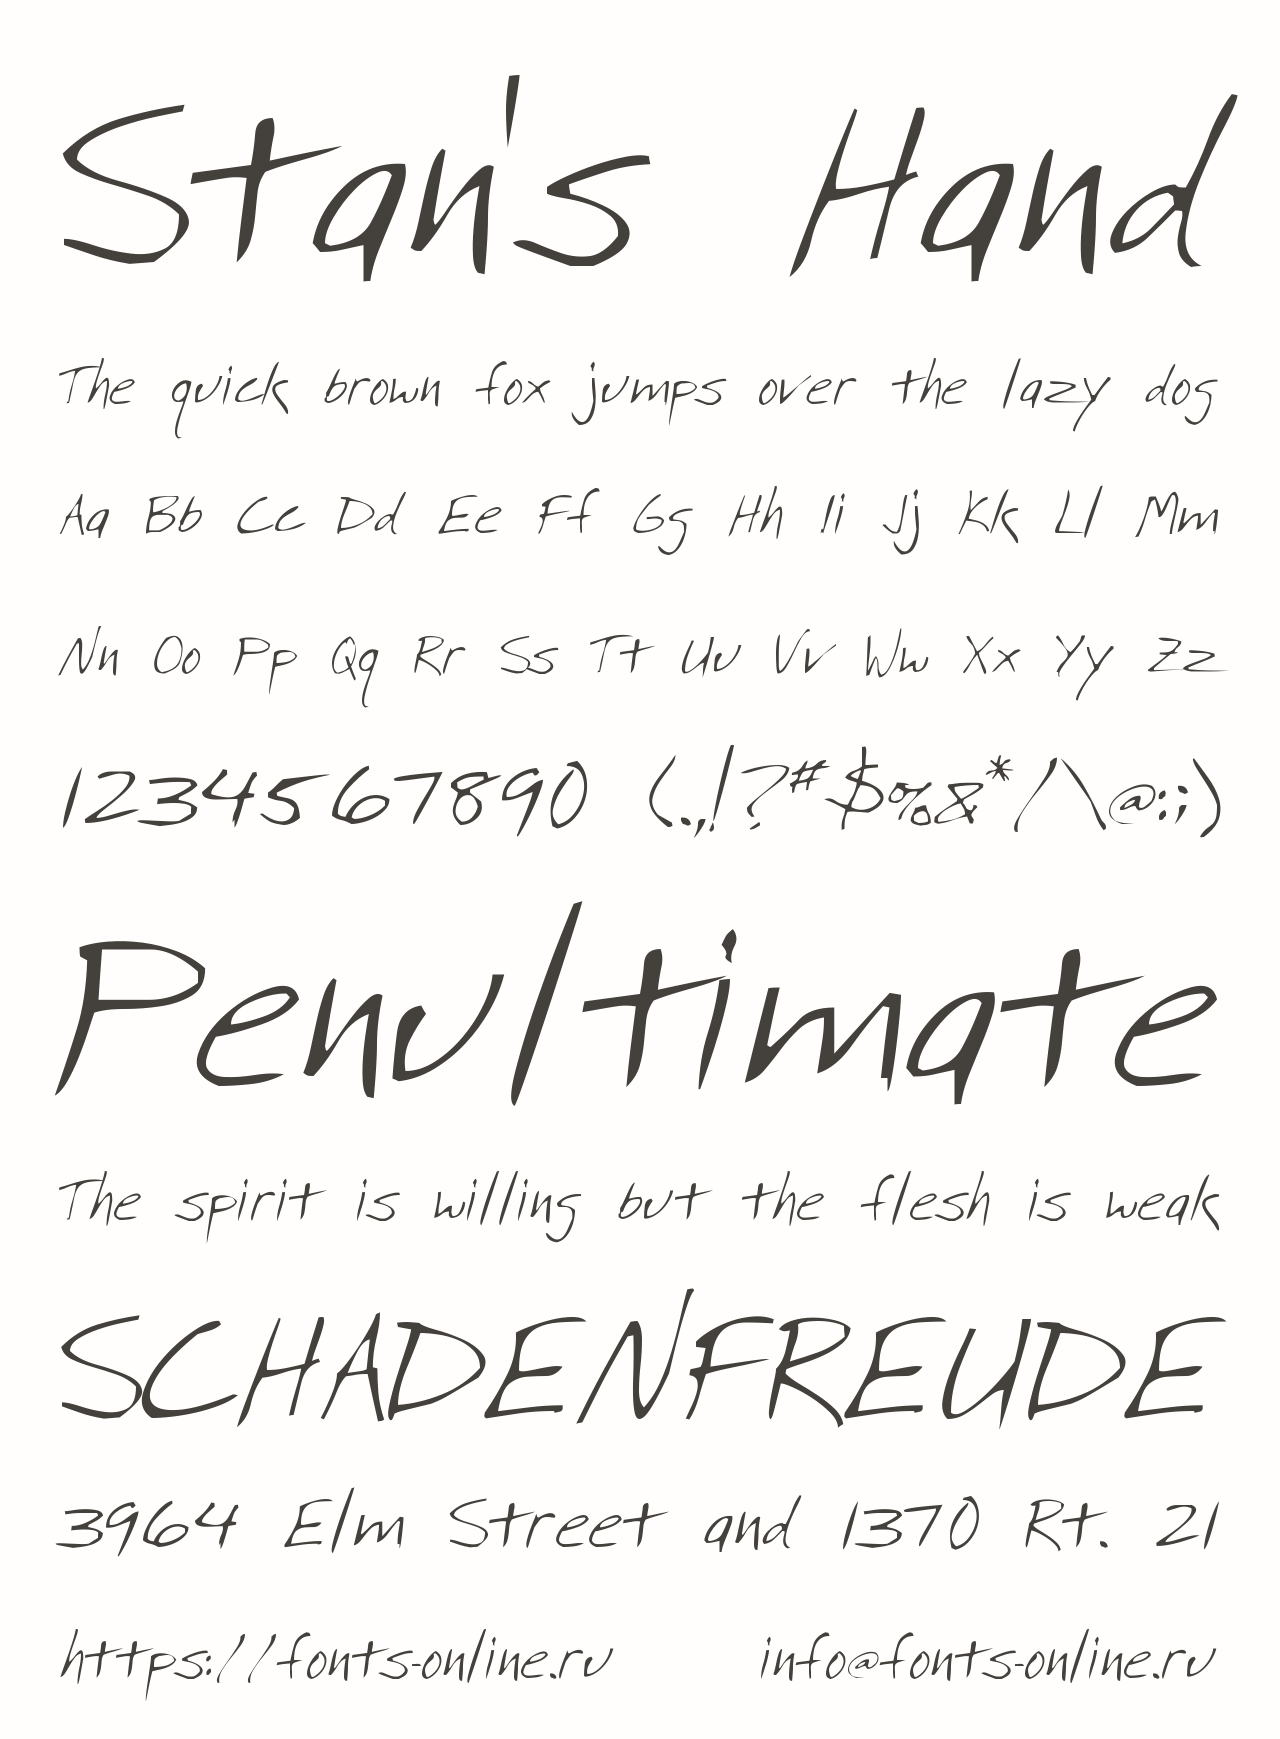 Stan's Hand
The quick brown fox jumps over the lazy dog
Aa Bb Cc Dd Ee Ff Gg Hh Ii Jj Kk Ll Mm
Nn Oo Pp Qq Rr Ss Tt Uu Vv Ww Xx Yy Zz
1234567890 (.,!?#$%&*/\@:;)
Penultimate
The spirit is willing but the flesh is weak
SCHADENFREUDE
3964 Elm Street and 1370 Rt. 21
https://fonts-online.ru info@fonts-online.ru